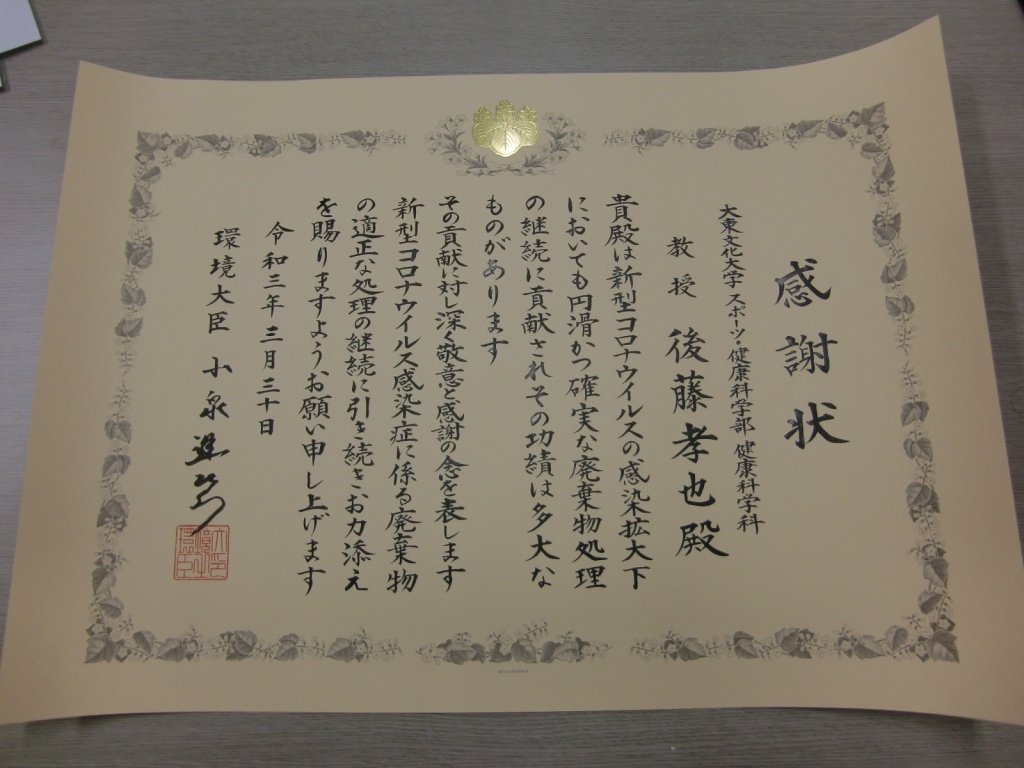 感謝状
大東文化大学 スポーツ・健康科学部 健康科学科
教授 後藤孝也殿
貴殿は新型コロナウイルスの感染拡大下
においても円滑かつ確実な廃棄物処理
の継続に貢献されその功績は多大な
ものがあります
その貢献に対し深く敬意と感謝の念を表します
新型コロナウイルス感染症に係る廃棄物
の適正な処理の継続に引き続きお力添え
を賜りますよう、お願い申し上げます
令和三年三月三十日
環境大臣 小泉進次郎